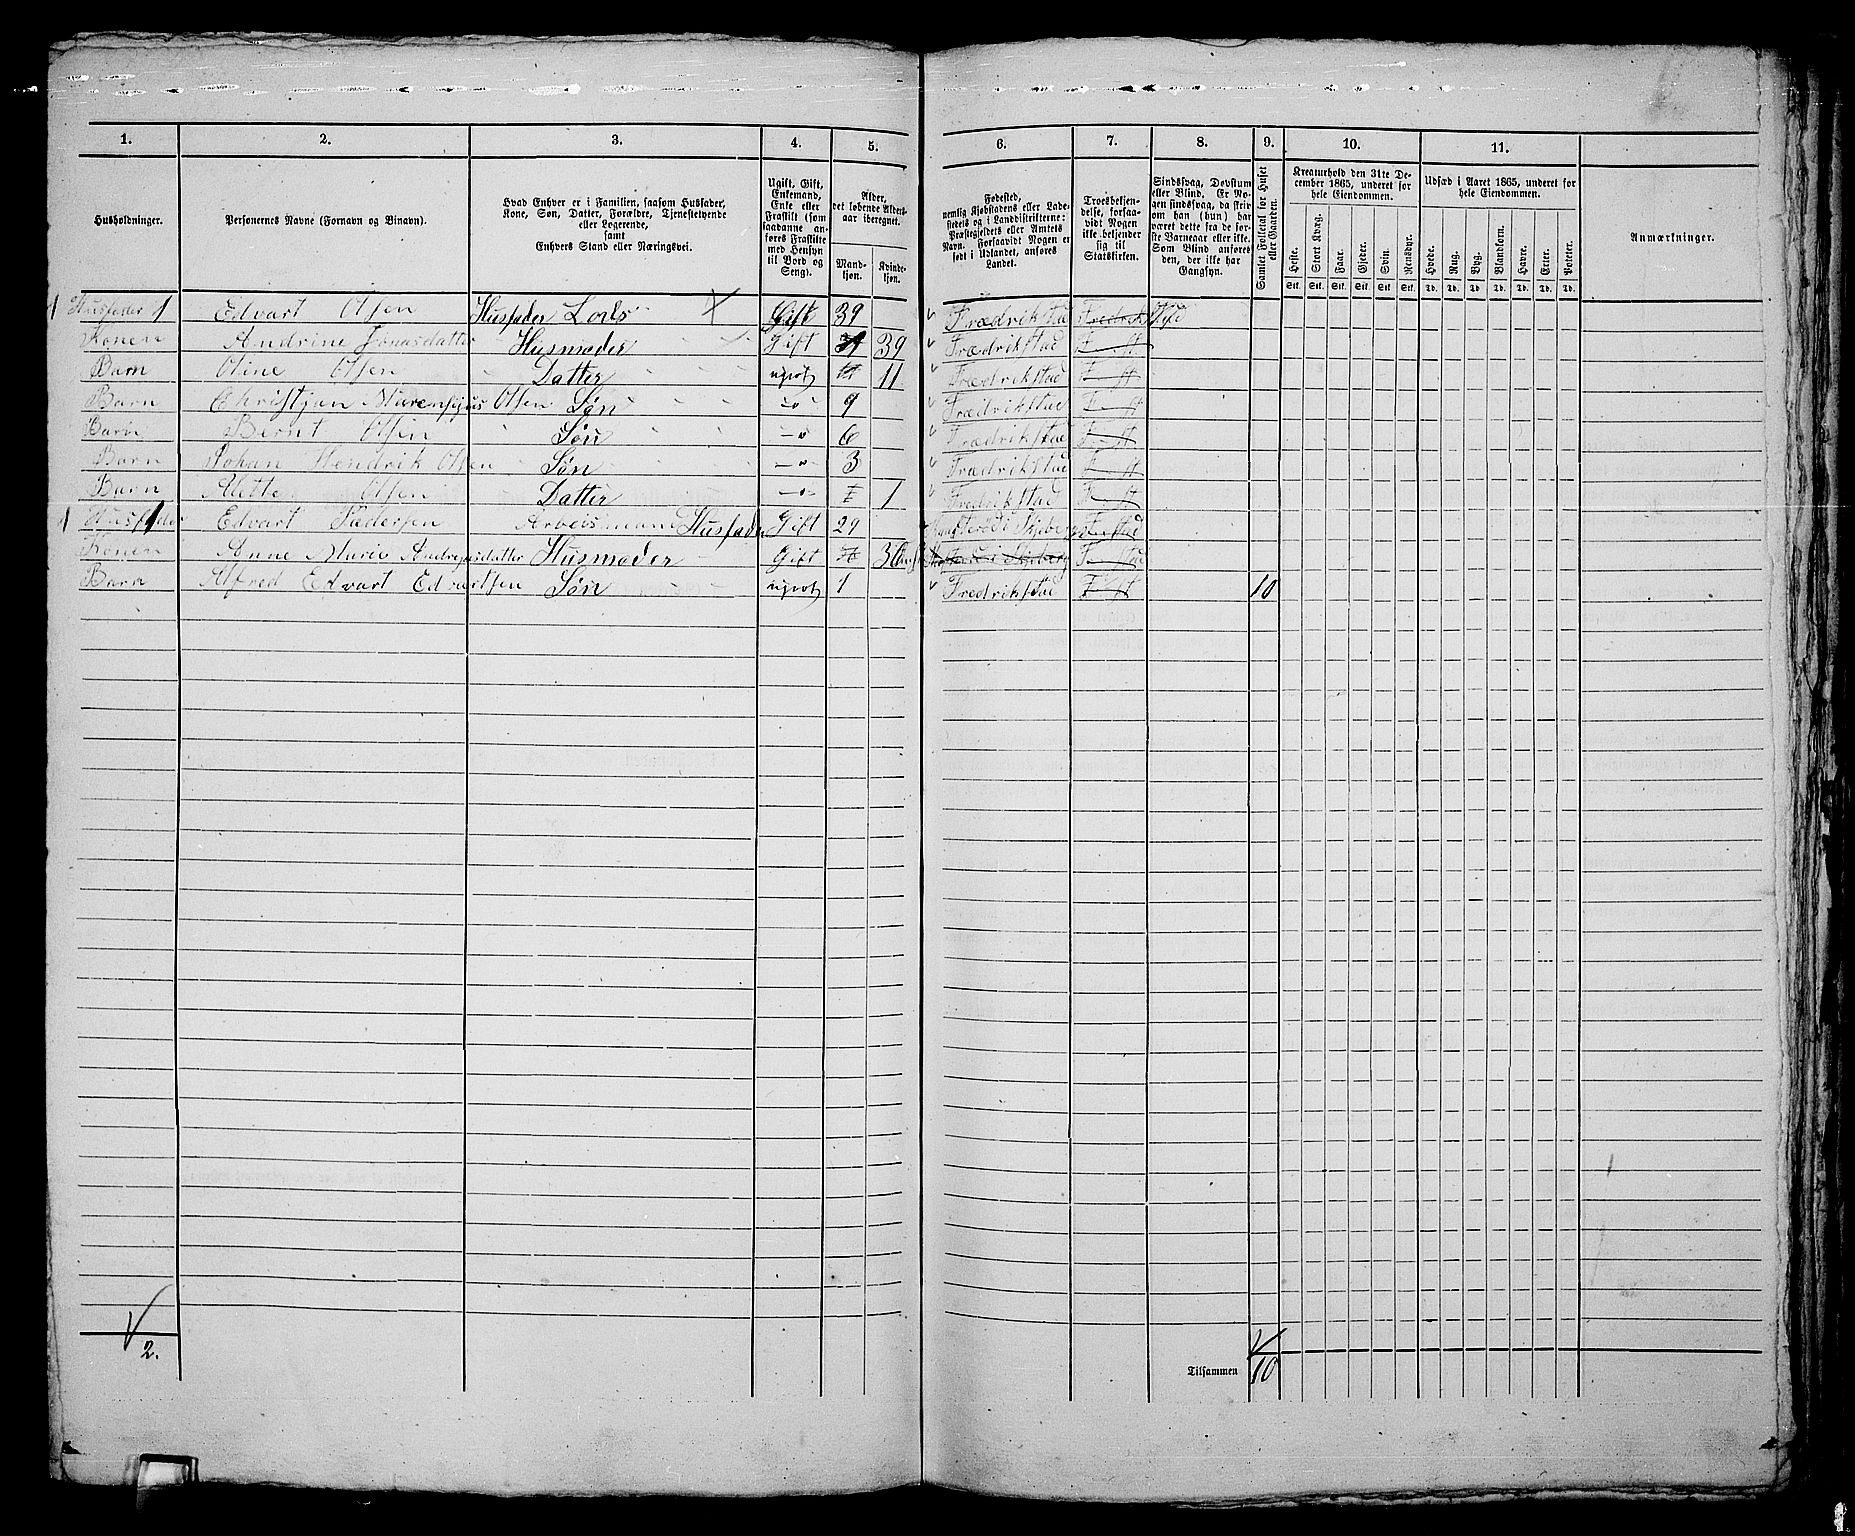 1. 2. 3. 4. 5. 6. 7. 8. 9. 10. 11.
Husholdninger.
Personernes Navne (Fornavn og Binavn).
Hvad Enhver er i Familien, saasom Husfader,
Kone, Søn, Datter, Forældre, Tjenestetyende
eller Logerende,
samt
Enhvers Stand eller Næringsvei.
Ugift, Gift,
Enkemand,
Enke eller
Fraskilt (som
saadanne an-
føres Fraskilte
med Hensyn
til Bord og
Seng).
Alder,
det løbende Alders-
aar iberegnet.
Mand-
kjøn.
Kvinde-
kjøn.
Fødested,
nemlig Kjøbstadens eller Lade-
stedets og i Landdistrikterne:
Præstegjeldets eller Amtets
Navn. Forsaavidt Nogen er
født i Udlandet, anføres
Landet.
Troesbekjen-
delse, forsaa-
vidt Nogen
ikke bekjender
sig til
Statskirken.
Sindssvag, Døvstum
eller Blind. Er No-
gen sindssvag, da skriv
om han (hun) har
været dette fra de før-
ste Barneaar eller ikke.
Som Blind anføres
den, der ikke har
Gangsyn.
Samlet Folketal for Huset
eller Gaarden.
Kreaturhold den 31te De-
cember 1865, underet for
hele Eiendommen.
Heste. Stort Kvæg. Faar. Gjeder. Svin. Rensdyr.
Stk. Stk. Stk. Stk. Stk. Stk.
Udsæd i Aaret 1865, underet for
hele Eiendommen.
Hvede. Rug. Byg. Blandkorn. Havre. Erter. Poteter.
Td. Td. Td. Td. Td. Td. Td.
Anmærkninger.
1 Husfader 1 Edvart Olsen Husfader Lods Gift 39 Frædrikstad Fredrikstad
Konen Andrine Jonasdatter Husmoder Gift 39 Frædrikstad F—st
Barn Oline Olsen Datter ugivt 11 Frædrikstad F—st
Barn Christjan Olsen Søn —"— 9 Frædrikstad F—st
Barn Bernt Olsen Søn —"— 6 Frædrikstad F—st
Barn Johan Hendrik Olsen Søn —"— 3 Frædrikstad F—st
Barn Alette Olsen Datter —"— 1 Fredrikstad F—st
1 Husfader Edvart Pedersen Arbeismann Husfader Gift 29 i Skjeberg
Konen Anne Marie Andreasdatter Husmoder Gift 36 i Skjeberg
Barn Alfred Edvart Edvartsen Søn ugivt 1 Fredrikstad F—st 10
2.
Tilsammen 10